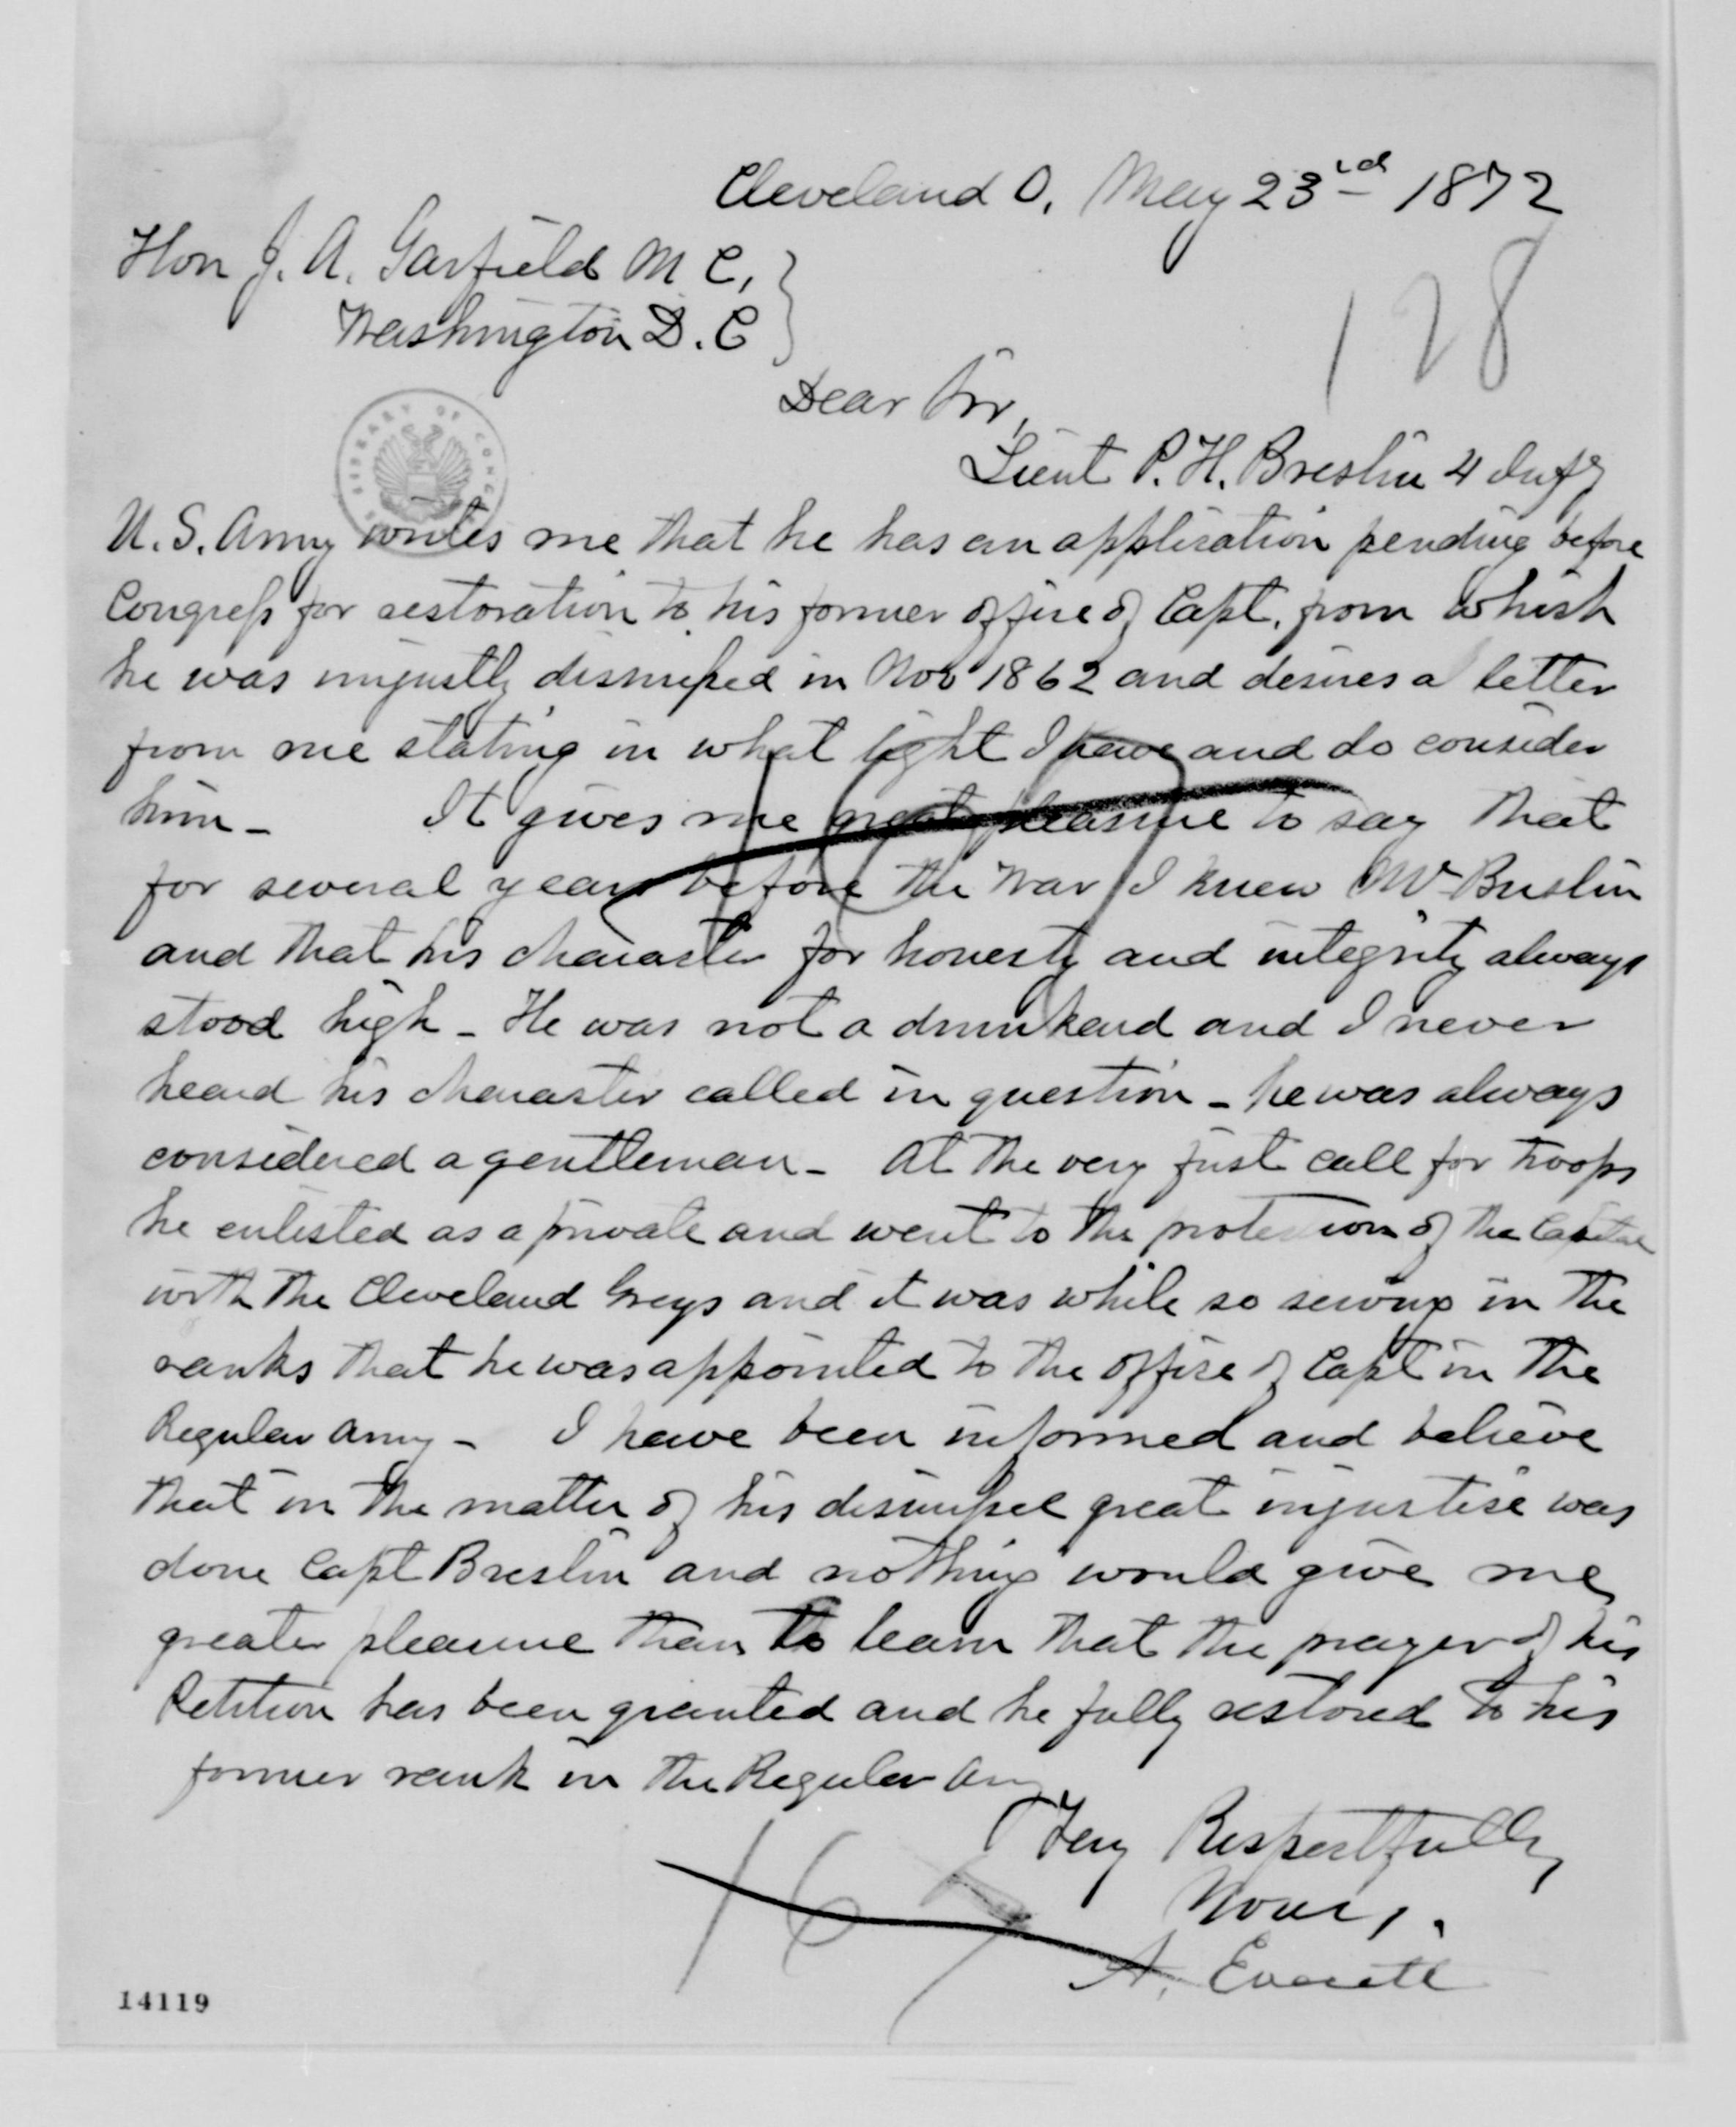 Cleveland O, May 23rd 1872
Hon J. A. Garfield M C,
Washington D. C
128
Dear Sir,
Lieut P. H. Breslin 4 Infy
LIBRARY OF CONG
U. S. Army writes me that he has an application pending before
Congress for restoration to his former office of Capt. from which
he was unjustly dismissed in Nov 1862 and desires a letter
from me stating in what light I have and do consider
him - It gives me great pleasure to say that
for several years before the War I knew Mr Breslin
and that his character for honesty and integrity always
stood high - He was not a drunkard and I never
heard his character called in question - he was always
considered a gentleman - At the very first call for troops
he enlisted as a private and went to the protection of the Capital
with the Cleveland Greys and it was while so serving in the
ranks that he was appointed to the office of Capt in the
Regular Army - I have been informed and believe
that in the matter of his dismissal great injustice was
done Capt Breslin and nothing would give me
greater pleasure than to learn that the prayer of his
Petition has been granted and he fully restored to his
former rank in the Regular Army
Very Respectfully
Yours,
A. Everett
167
14119